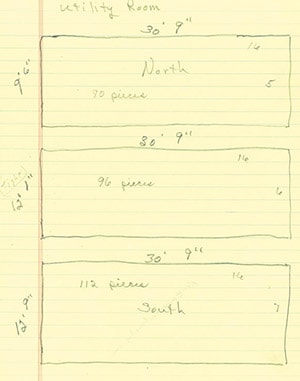 Utility Room
30' 9"
16
9' 6"
North
5
pieces
30' 9"
16
12' 1"
96 pieces
6
30' 9"
16
112 pieces
12' 9"
South
7